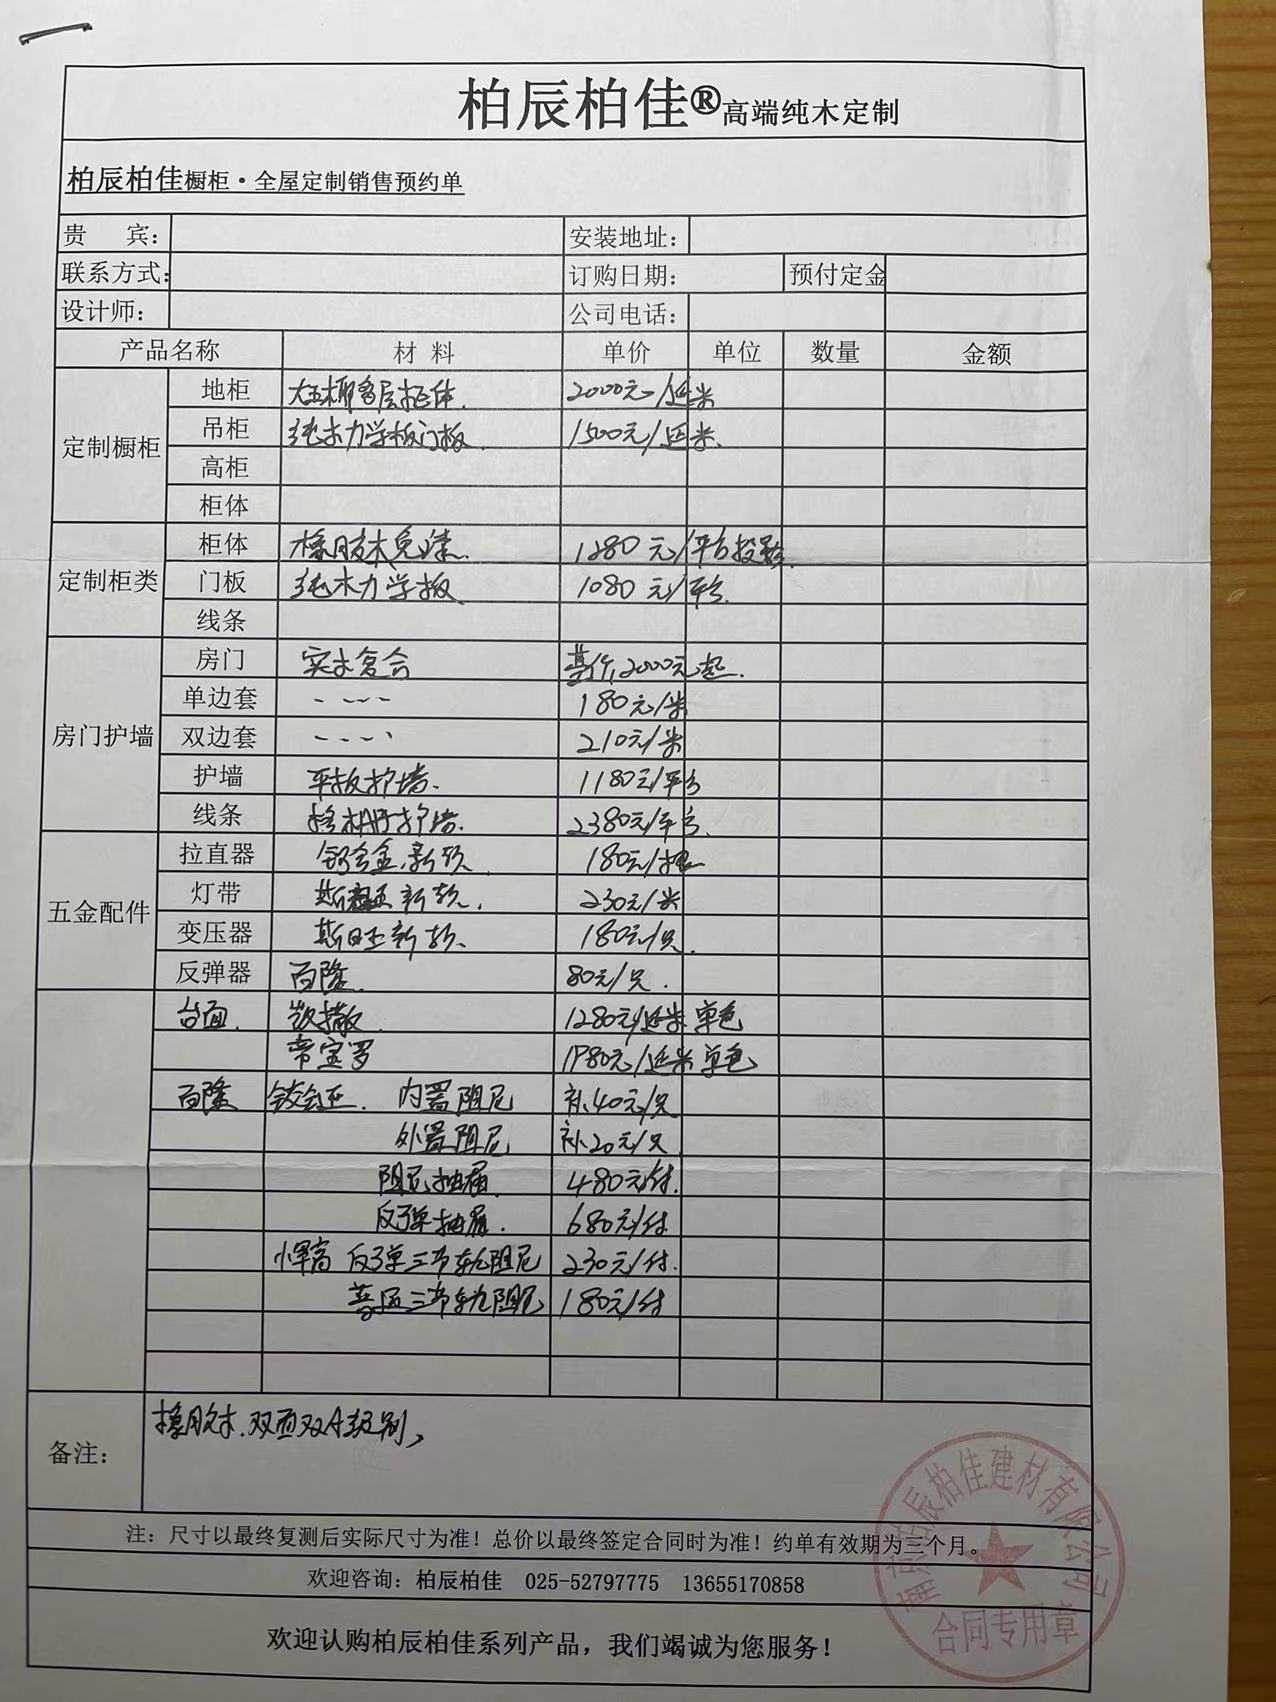 柏辰柏佳®高端纯木定制
柏辰柏佳橱柜·全屋定制销售预约单
贵 宾： 安装地址：
联系方式： 订购日期： 预付定金
设计师： 公司电话：
产品名称 材 料 单价 单位 数量 金额
定制橱柜
地柜 多层柜体 2000元/延米
吊柜 纯木力学板门板 1500元/延米
高柜
柜体
定制柜类
柜体 橡胶木免漆 1280元/平方投影
门板 纯木力学板 1080元/平方
线条
房门护墙
房门 实木复合 基价2000元起
单边套 180元/米
双边套 210元/米
护墙 平板护墙 1180元/平方
线条 格栅护墙 2380元/平方
五金配件
拉直器 铝合金新款 180元/根
灯带 新款 230元/米
变压器 斯旺新款 180元/只
反弹器 百隆 80元/只
台面 凯撒 1280元/延米 单色
帝宝罗 1980元/延米 单色
百隆 铰链 内置阻尼 补40元/只
外置阻尼 补20元/只
阻尼抽屉 480元/付
反弹抽屉 680元/付
悍高 反弹三节轨阻尼 230元/付
普通三节轨阻尼 180元/付
备注： 橡胶木、双面双A级别，
注：尺寸以最终复测后实际尺寸为准！总价以最终签定合同时为准！约单有效期为三个月。
欢迎咨询：柏辰柏佳 025-52797775 13655170858
欢迎认购柏辰柏佳系列产品，我们竭诚为您服务！
南京柏辰柏佳建材有限公司
合同专用章